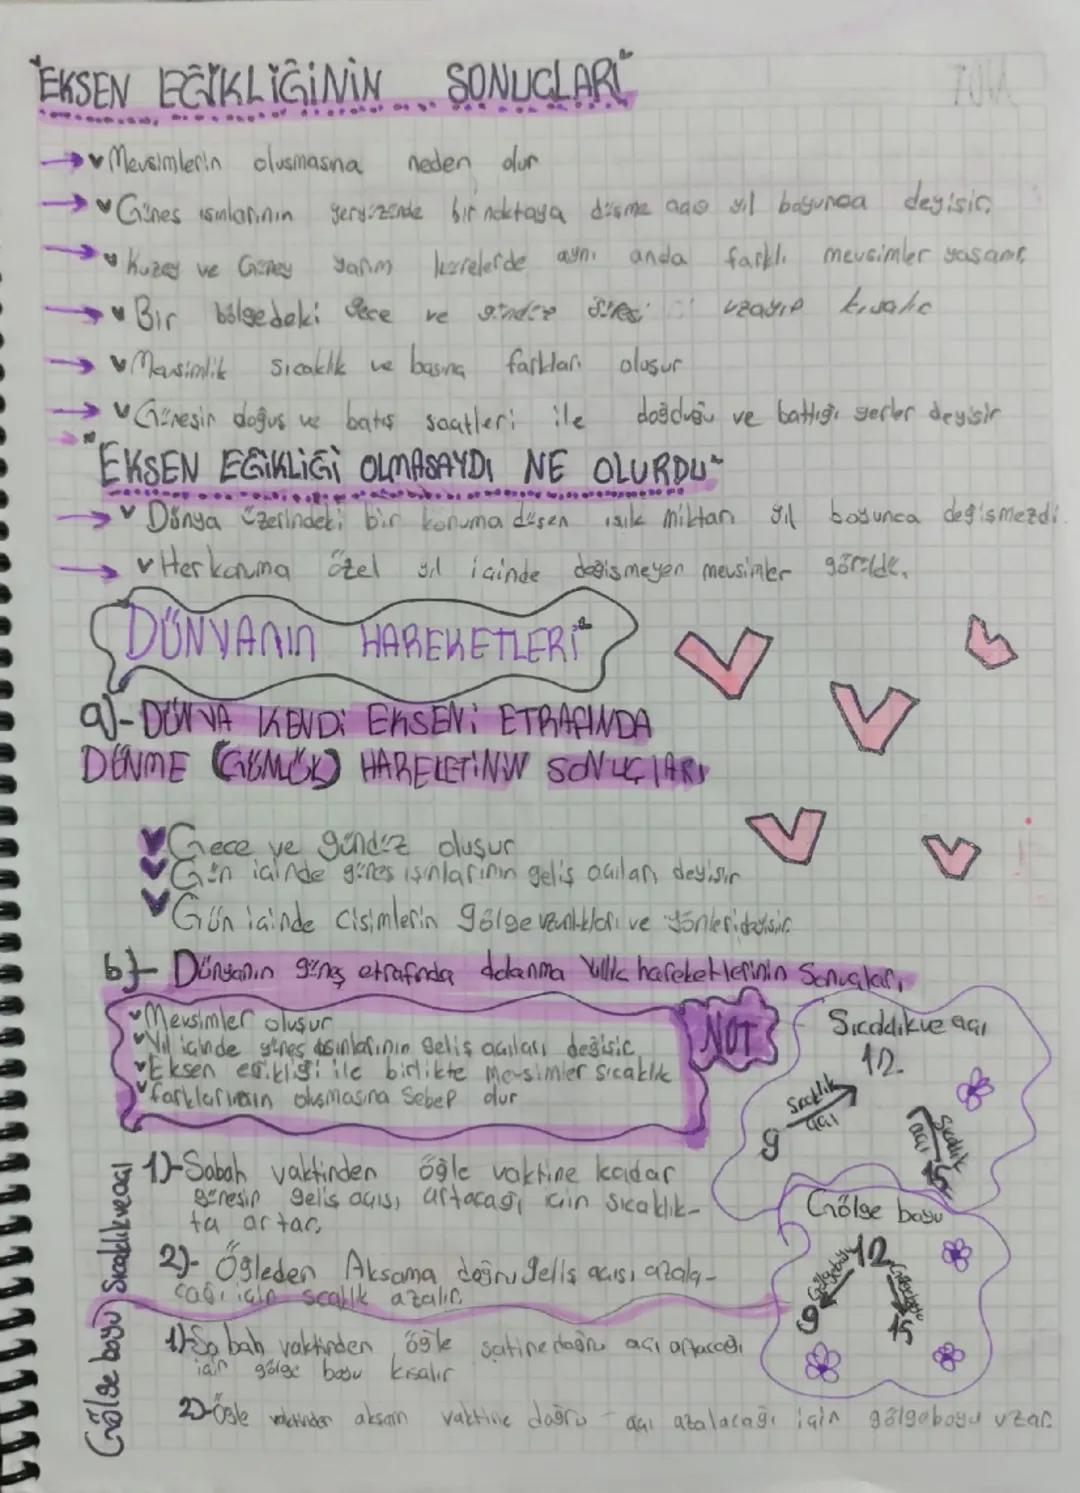 "EKSEN EĞİKLİĞİNİN SONUCLARI"
Mevsimlerin olusmasına neden olur
Günes ısınlarının yeryüzünde bir noktaya düşme açısı yıl boyunca deyisir.
Kuzey ve Güney yarım kürelerde aynı anda farklı mevsimler yasanır
Bir bölgedeki gece ve gündüz süresi uzayıp kısalır
Mevsimlik sıcaklık ve basınç farkları oluşur
Güneşin doğuş ve batış saatleri ile doğduğu ve battığı yerler deyisir
"EKSEN EĞİKLİĞİ OLMASAYDI NE OLURDU"
Dünya üzerindeki bir konuma düsen ısık miktarı yıl boyunca değişmezdi.
Her konuma özel yıl içinde değişmeyen mevsimler görüldü.
DÜNYANIN HAREKETLERİ
a)- DÜNYA KENDİ EKSENİ ETRAFINDA
DÖNME (GÜNLÜK) HAREKETİNİN SONUÇLARI
Gece ve gündüz oluşur
Gün içinde güneş ışınlarının geliş açıları deyişir
Gün içinde cisimlerin gölge uzunlukları ve yönleri deyisir.
b)- Dünyanın güneş etrafında dolanma Yıllık hareketlerinin Sonuçları
Mevsimler oluşur
Yıl içinde güneş ısınlarının geliş açıları değişir
Eksen eğikliği ile birlikte mevsimler sıcaklık
farklarının olusmasına Sebep olur
NOT
Sıcaklıkve açı
12
Sıcaklık
açı
9
Sıcaklık
açı
15
Sıcaklıkveaçı
1)-Sabah vaktinden öğle vaktine kadar
güneşin geliş açısı artacağı için sıcaklık-
ta artar.
2)- Öğleden Aksama doğru geliş açısı azala-
cağı için scaklık azalır.
Gölge boyu
12
Gölgeboyu
9
Gölgeboyu
15
Gölge boyu
1)Sabah vaktinden öğle saatine doğru açı artacağı
için gölge boyu kısalır
2)-Öğle vaktinden aksam vaktine doğru açı azalacağı için gölgeboyu uzar.